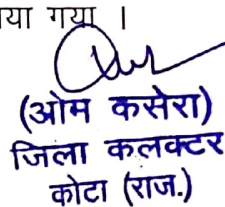 या गया ।
(ओम कसेरा)
जिला कलक्टर
कोटा (राज.)